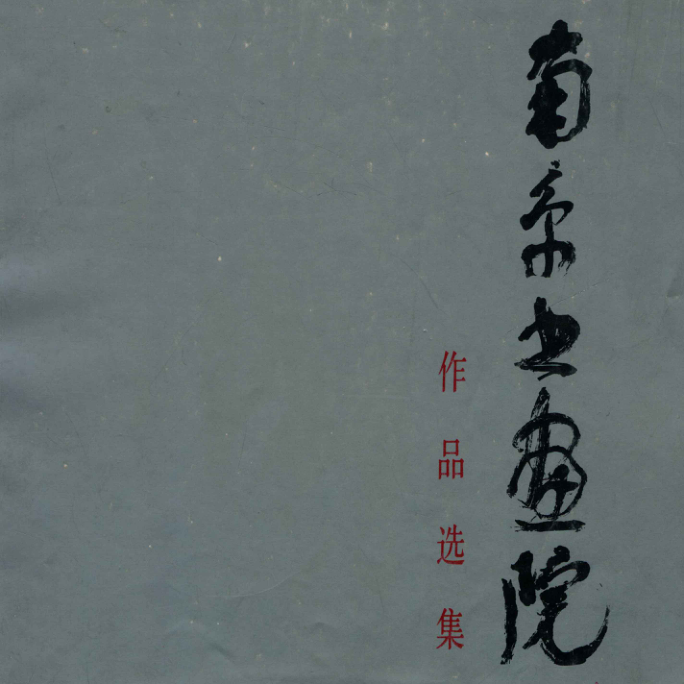 南京书画院
作品选集